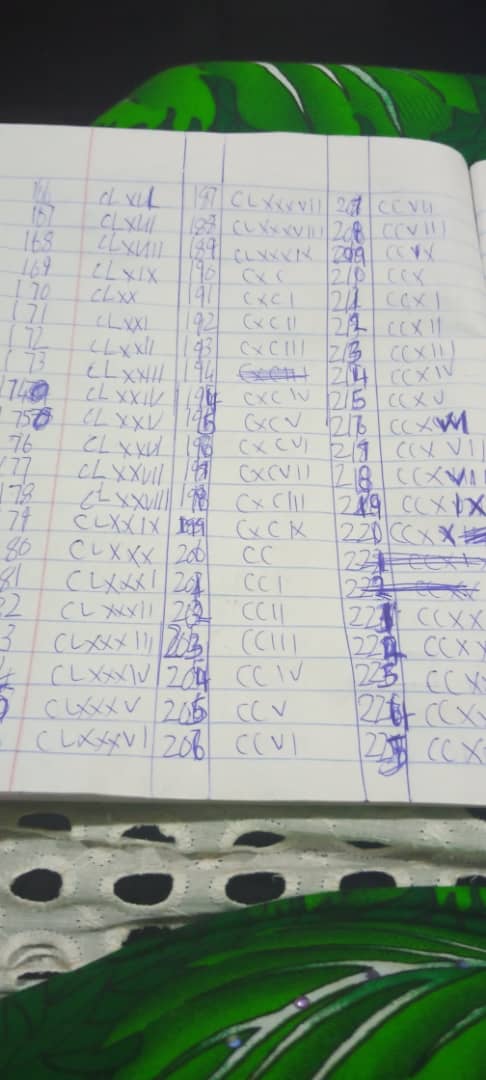 166 CLXVI 187 CLXXXVII 207 CCVII
167 CLXVII 188 CLXXXVIII 208 CCVIII
168 CLXVIII 189 CLXXXIX 209 CCIX
169 CLXIX 190 CXC 210 CCX
170 CLXX 191 CXCI 211 CCXI
171 CLXXI 192 CXCII 212 CCXII
172 CLXXII 193 CXCIII 213 CCXIII
173 CLXXIII 194 214 CCXIV
174 CLXXIV 194 CXCIV 215 CCXV
175 CLXXV 195 CXCV 216 CCXVI
76 CLXXVI 196 CXCVI 217 CCXVII
177 CLXXVII 197 CXCVII 218 CCXVIII
178 CLXXVIII 198 CXCIII 219 CCXIX
79 CLXXIX 199 CXCIX 220 CCXX
80 CLXXX 200 CC
81 CLXXXI 201 CCI
2 CLXXXII 202 CCII 221 CCXX
3 CLXXXIII 203 CCIII CCXX
CLXXXIV 204 CCIV CCX
CLXXXV 205 CCV CCX
CLXXXVI 206 CCVI CCX